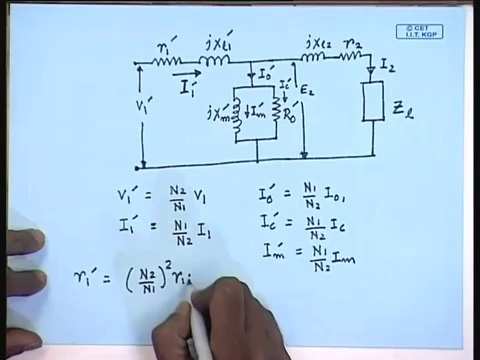 © CET
I.I.T. KGP
r₁' jxℓ₁' jxℓ₂ r₂
I₁' I₀' I₂
V₁' jx'ₘ I'ₘ Ic' R₀' E₂ Zℓ
V₁' = N₂/N₁ V₁ I₀' = N₁/N₂ I₀,
I₁' = N₁/N₂ I₁ Ic' = N₁/N₂ Ic
I'ₘ = N₁/N₂ Iₘ
r₁' = (N₂/N₁)² r₁;